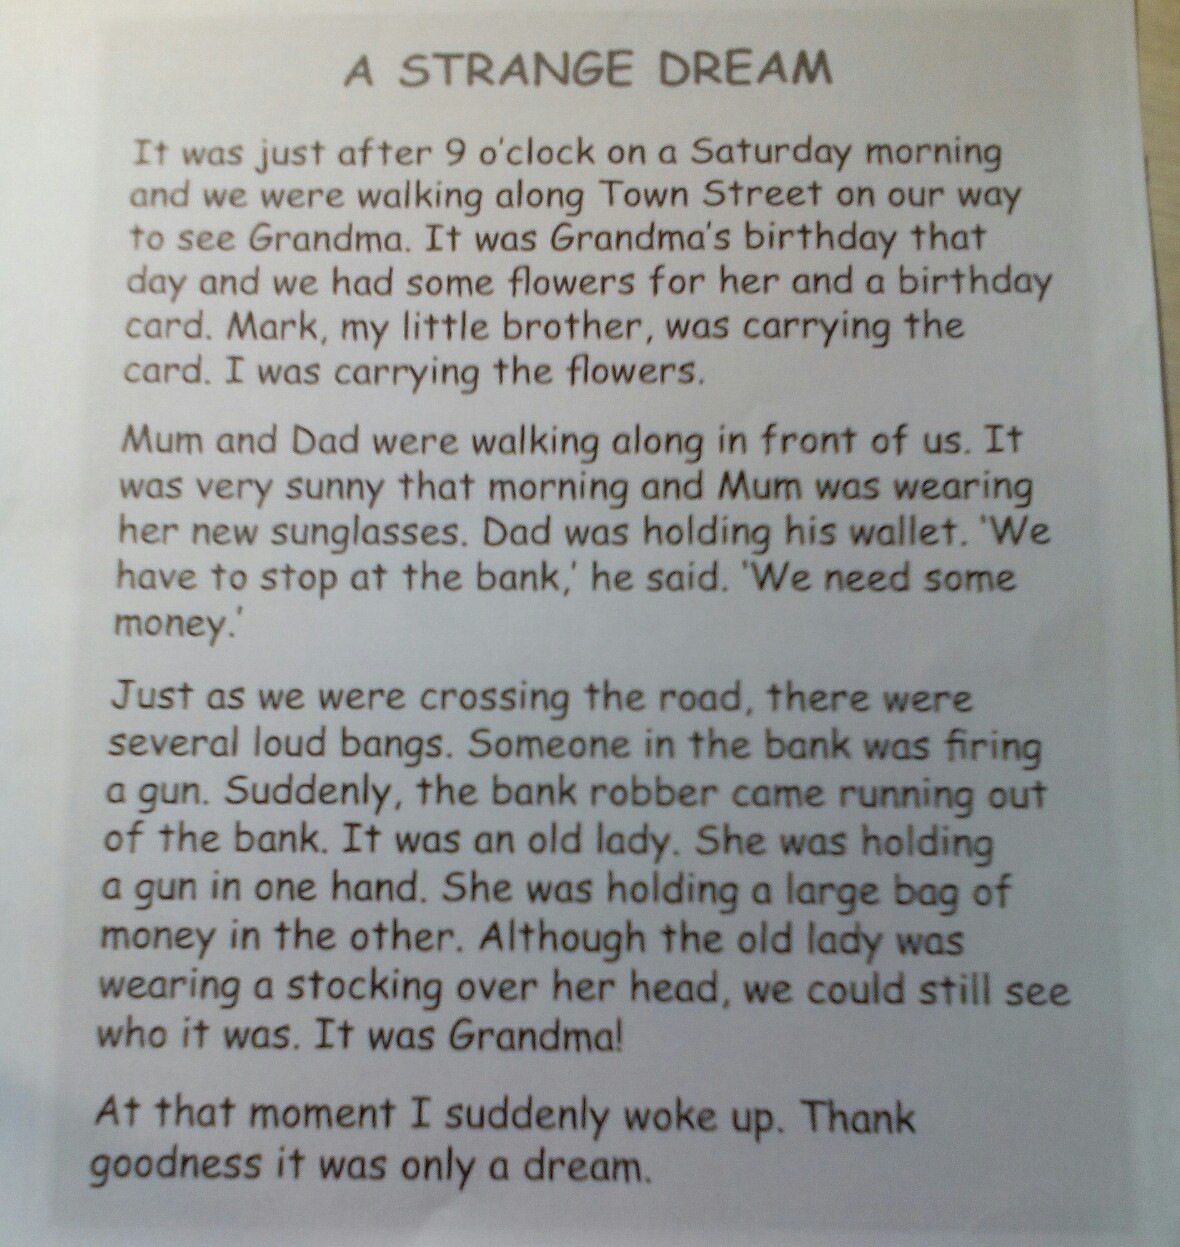 A STRANGE DREAM
It was just after 9 o'clock on a Saturday morning
and we were walking along Town Street on our way
to see Grandma. It was Grandma's birthday that
day and we had some flowers for her and a birthday
card. Mark, my little brother, was carrying the
card. I was carrying the flowers.
Mum and Dad were walking along in front of us. It
was very sunny that morning and Mum was wearing
her new sunglasses. Dad was holding his wallet. 'We
have to stop at the bank,' he said. 'We need some
money.'
Just as we were crossing the road, there were
several loud bangs. Someone in the bank was firing
a gun. Suddenly, the bank robber came running out
of the bank. It was an old lady. She was holding
a gun in one hand. She was holding a large bag of
money in the other. Although the old lady was
wearing a stocking over her head, we could still see
who it was. It was Grandma!
At that moment I suddenly woke up. Thank
goodness it was only a dream.